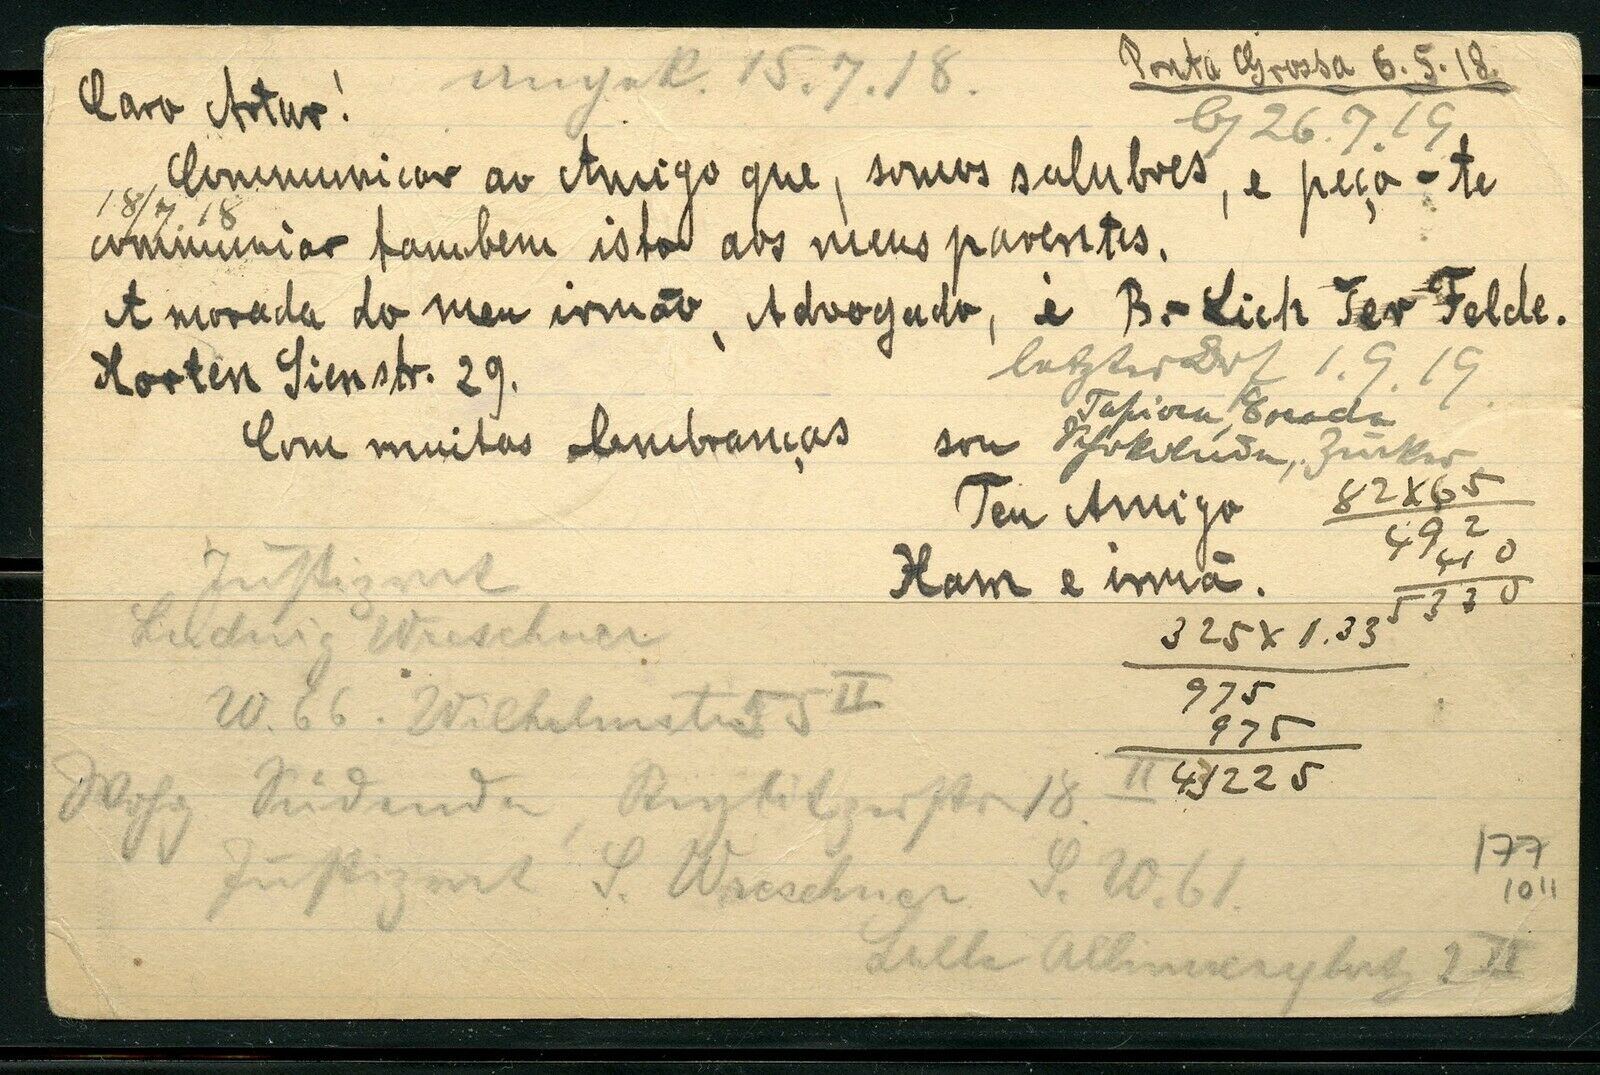 Ponta Grossa 6.5.18.
15.7.18.
Caro Artur!
26.7.19
Communicar ao Amigo que, somos salubres, e peço-te
18/7.18
communiar tambem isto aos meus parentes.
A morada do meu irmão, Advogado, é B.- Lich Ter Felde.
Horten Sienstr. 29.
letzter 1.9.19.
Com muitas Lembranças sou
Tapioca,
Schokolade, Zucker
Teu Amigo
82x65
492
410
5330
Ham e irmã.
Justizrat
Ludwig Wreschner
325x1.33
975
975
43225
W. 66. Wilhelmstr 55 II
Südende, 18. II
Justizrat S. Wreschner S.W.61.
2 II
177
1011